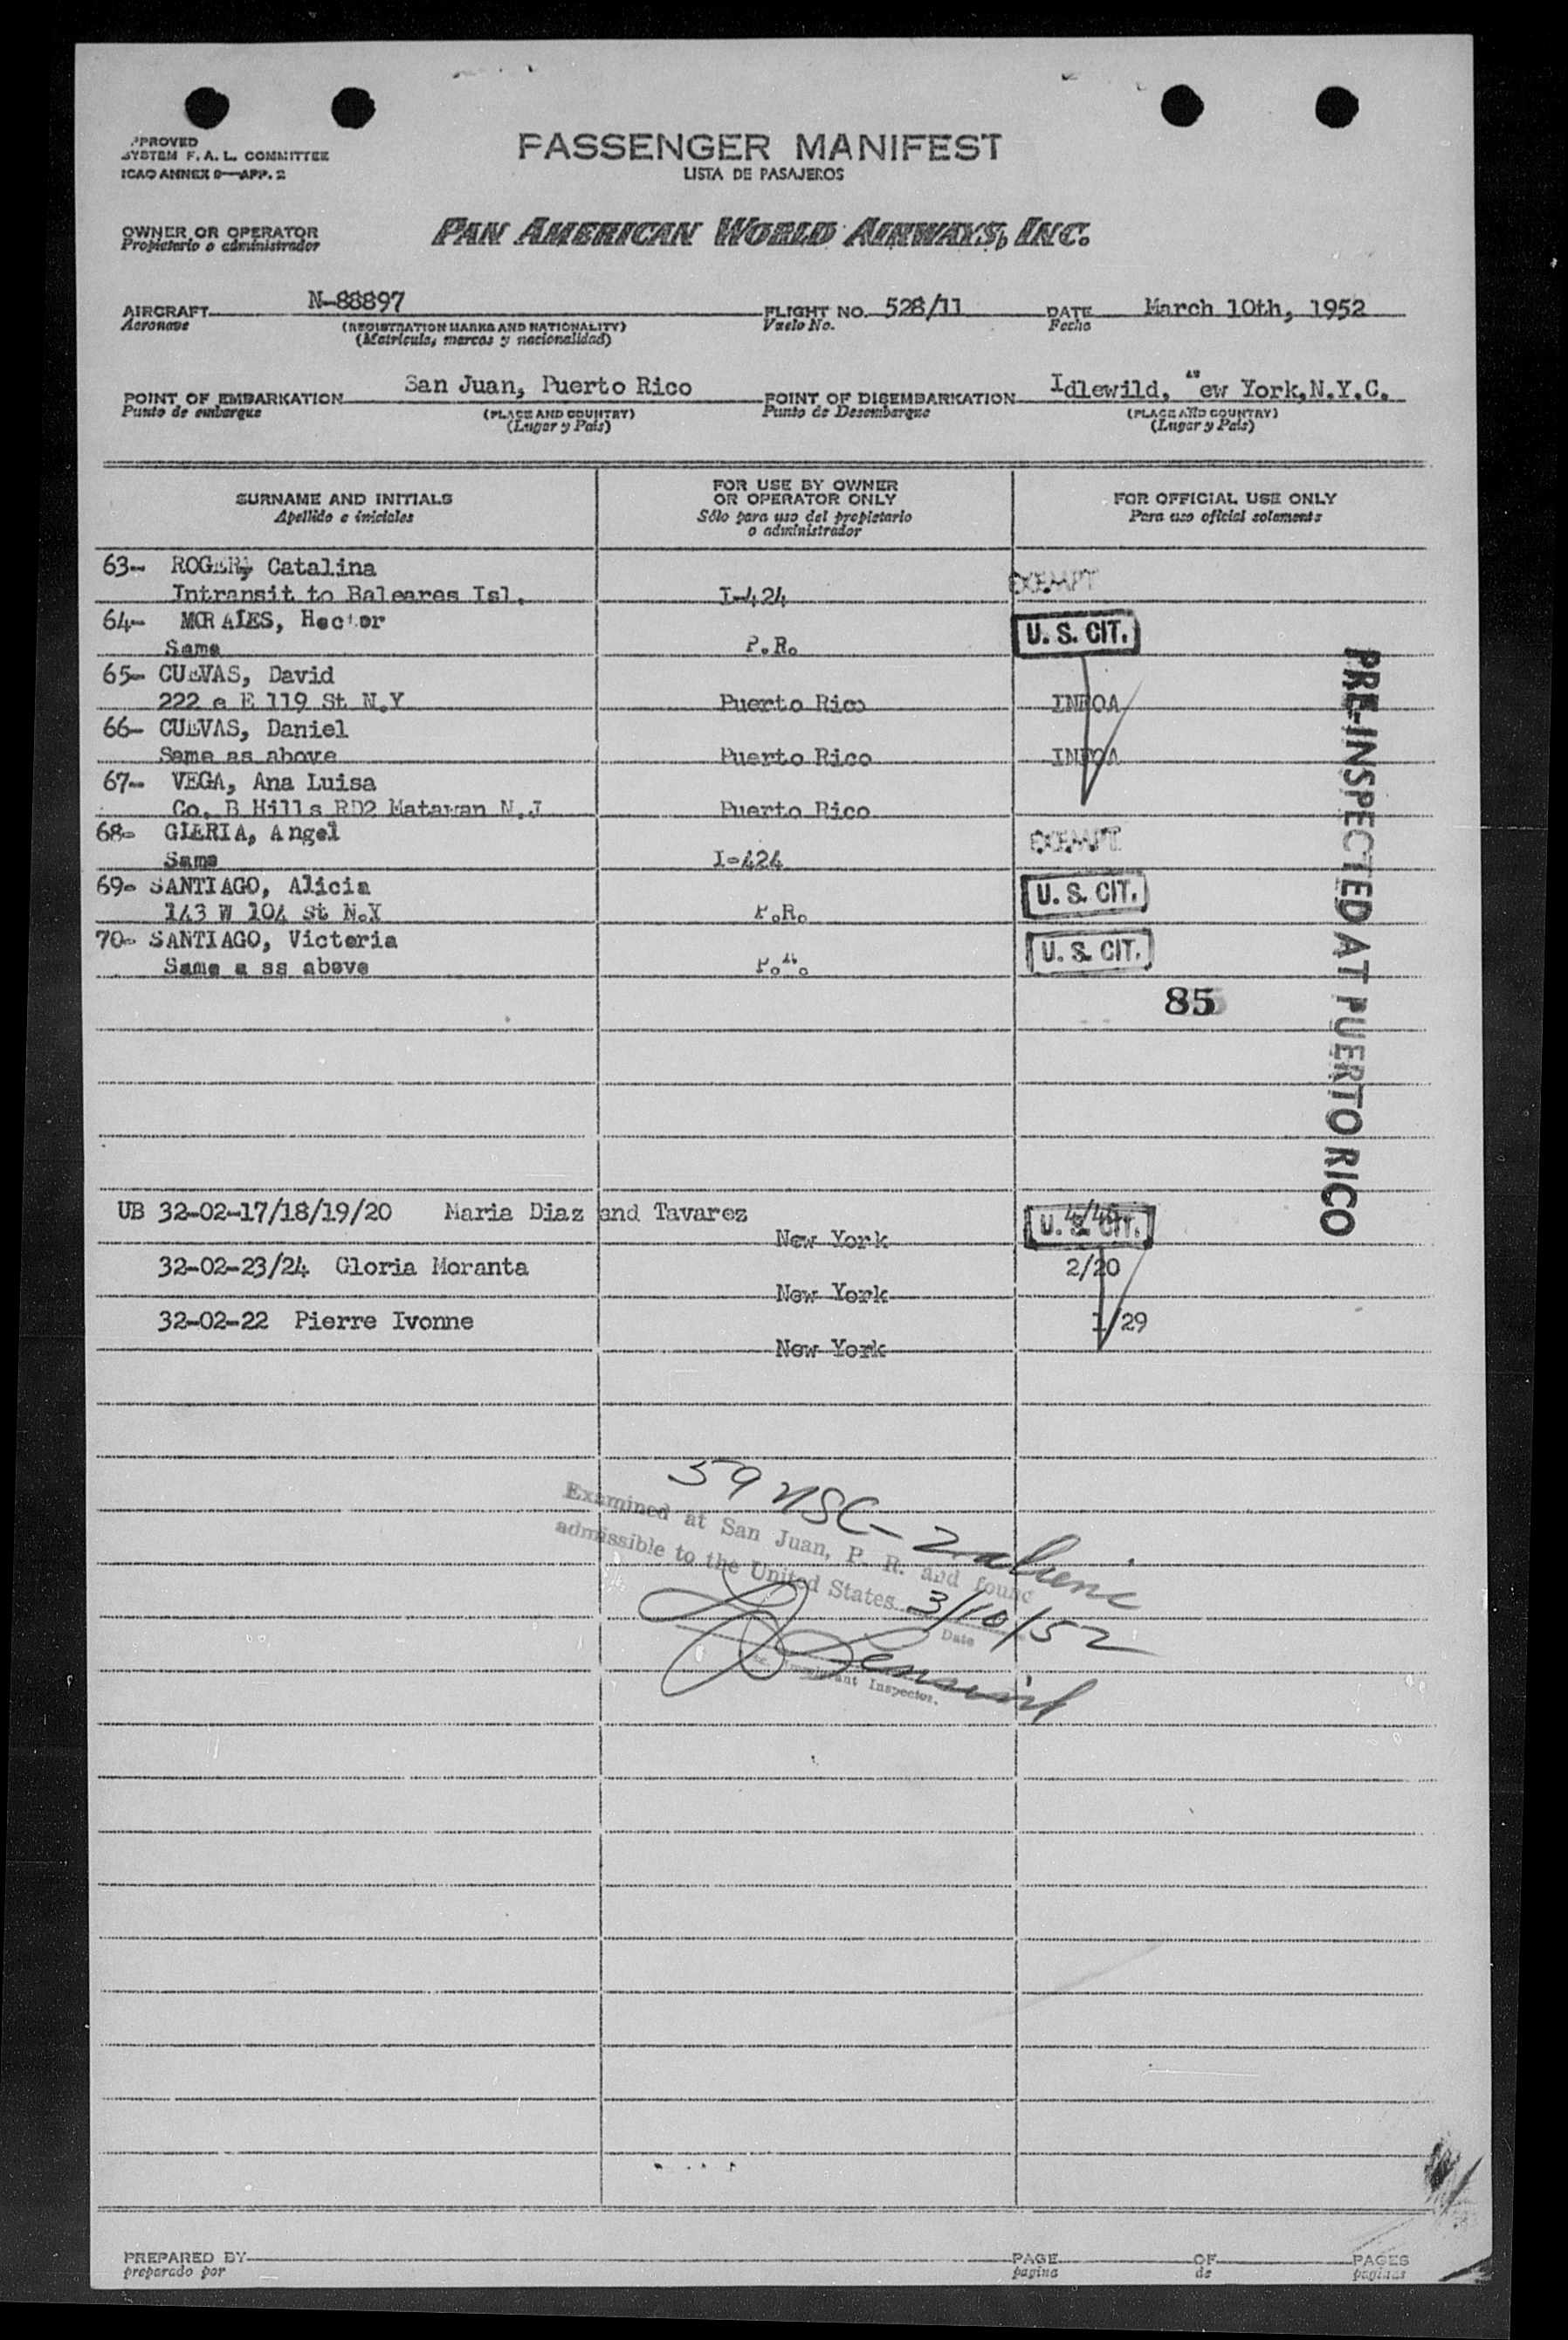 PASSENGER MANIFEST
LISTA DE PASAJEROS
PPROVED
SYSTEM F. A. L. COMMITTEE
ICAO ANNEX 9—APP. 2
OWNER OR OPERATOR
Propietario o administrador
PAN AMERICAN WORLD AIRWAYS, INC.
AIRCRAFT N-88897 FLIGHT NO. 528/11 DATE March 10th, 1952
Aeronave (REGISTRATION MARKS AND NATIONALITY) Vuelo No. Fecha
(Matricula, marcas y nacionalidad)
POINT OF EMBARKATION San Juan, Puerto Rico POINT OF DISEMBARKATION Idlewild, New York,N.Y.C.
Punto de embarque (PLACE AND COUNTRY) Punto de Desembarque (PLACE AND COUNTRY)
(Lugar y País) (Lugar y País)
SURNAME AND INITIALS FOR USE BY OWNER OR OPERATOR ONLY FOR OFFICIAL USE ONLY
Apellido e iniciales Sólo para uso del propietario o administrador Para uso oficial solamente
63- ROGER, Catalina
Intransit to Baleares Isl. I-424 EXEMPT
64- MORALES, Hector
Same P.R. U. S. CIT.
65- CUEVAS, David
222 e E 119 St N.Y Puerto Rico INFOA
66- CUEVAS, Daniel
Same as above Puerto Rico INFOA
67- VEGA, Ana Luisa
Co. B Hills RD2 Matawan N.J Puerto Rico
68- GLERIA, Angel
Same I-424 EXEMPT
69- SANTIAGO, Alicia
143 W 104 St N.Y P.R. U. S. CIT.
70- SANTIAGO, Victoria
Same a ss above P.R. U. S. CIT.
85
PRE-INSPECTED AT PUERTO RICO
UB 32-02-17/18/19/20 Maria Diaz and Tavarez 4/40
New York U. S. CIT.
32-02-23/24 Gloria Moranta 2/20
New York
32-02-22 Pierre Ivonne 1/29
New York
59 USC-
Examined at San Juan, P. R. and found
admissible to the United States 3/10/52
Date
Immigrant Inspector.
PREPARED BY PAGE OF PAGES
preparado por pagina de paginas